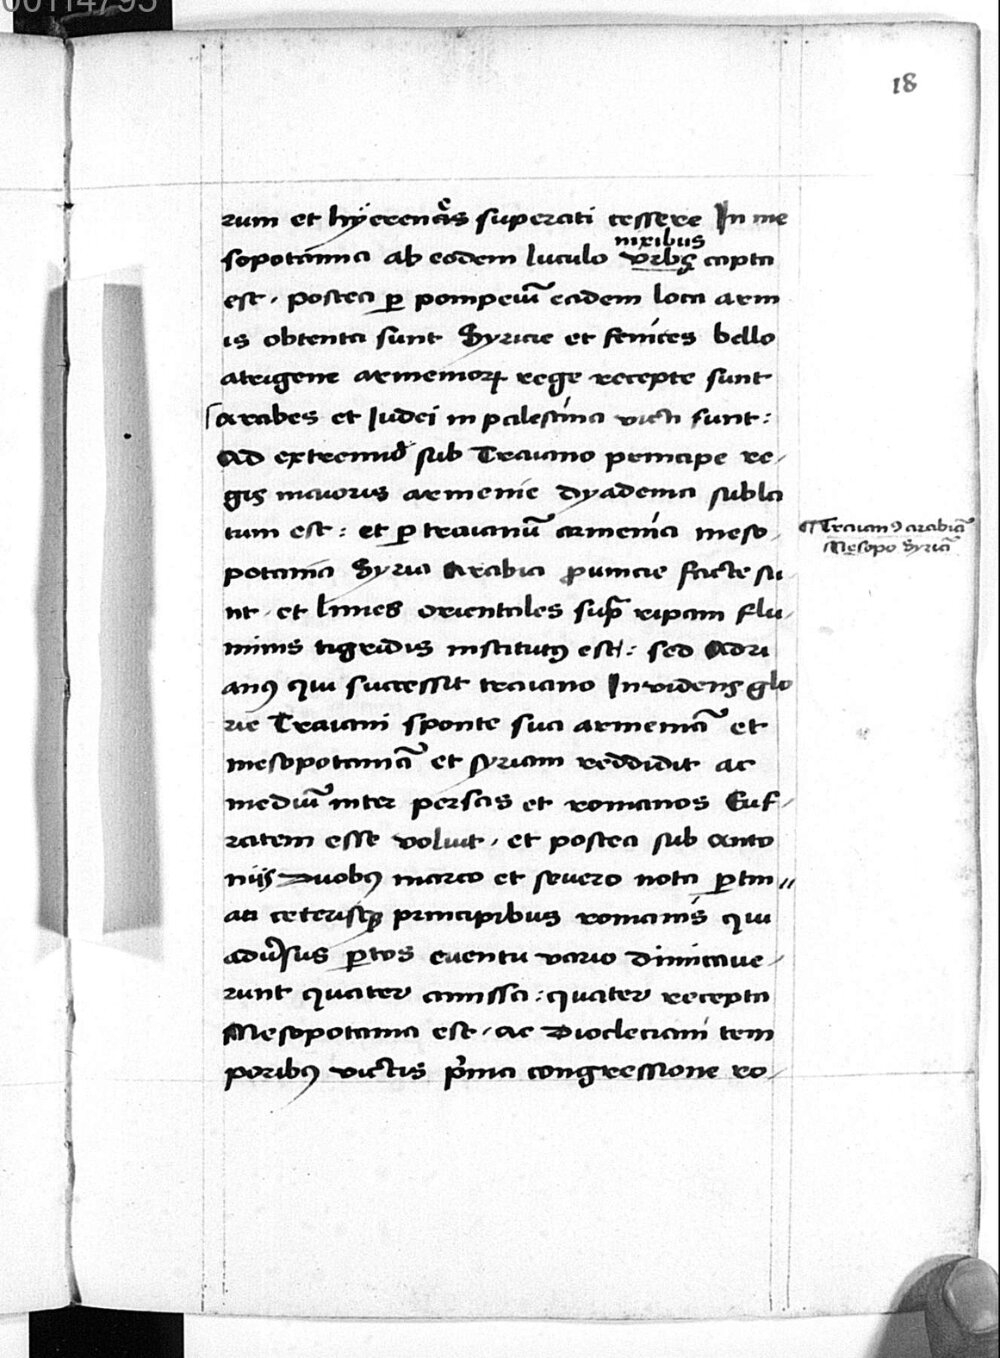 18
rum et hÿerencãs superati cessere In me
nixibus
sopotamia ab eodem luculo vrbs capta
est · postea ꝑ pompeiũ eadem loca arm
is obtenta sunt Syrie et fenices bello
a tigrene armeniorꝝ rege recepte sunt
arabes et Iudei in palestina victi sunt :
Ad extremũ sub Traiano principe re-
gis maioris armenie dyadema subla
tum est : et ꝑ traianũ armenia meso-
¶ Traianꝰ arabiã
Mesopo Syriã
potamia Syria Arabia ꝓuincie facte su-
nt · et limes orientales supra ripam flu-
minis tigridis institutꝰ est : sed Adri
anꝰ qui successit traiano Invidens glo
rie Traiani sponte sua armeniã et
mesopotamiã et syriam reddidit ac
mediũ inter persas et romanos Euf-
ratem esse voluit · et postea sub anto
nijs Duobꝰ marco et severo nota ꝑtin-
aci ceterisqꝫ principibus romanis qui
adũsus ꝑtos eventu vario dimicaue-
runt quater amissa : quater recepta
Mesopotamia est · ac Diocleciani tem
poribꝰ victis p̃ma congressione ro-